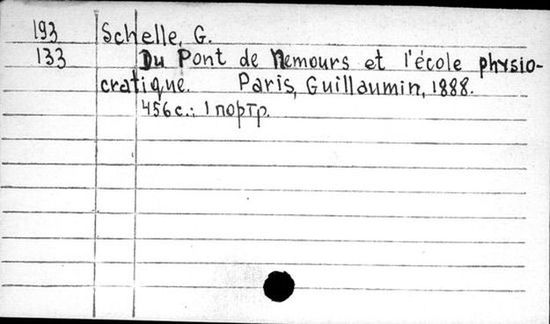 193 Schelle, G.
133 Du Pont de Nemours et l'école physio-
cratique. Paris, Guillaumin, 1888.
456 с.: 1 портр.